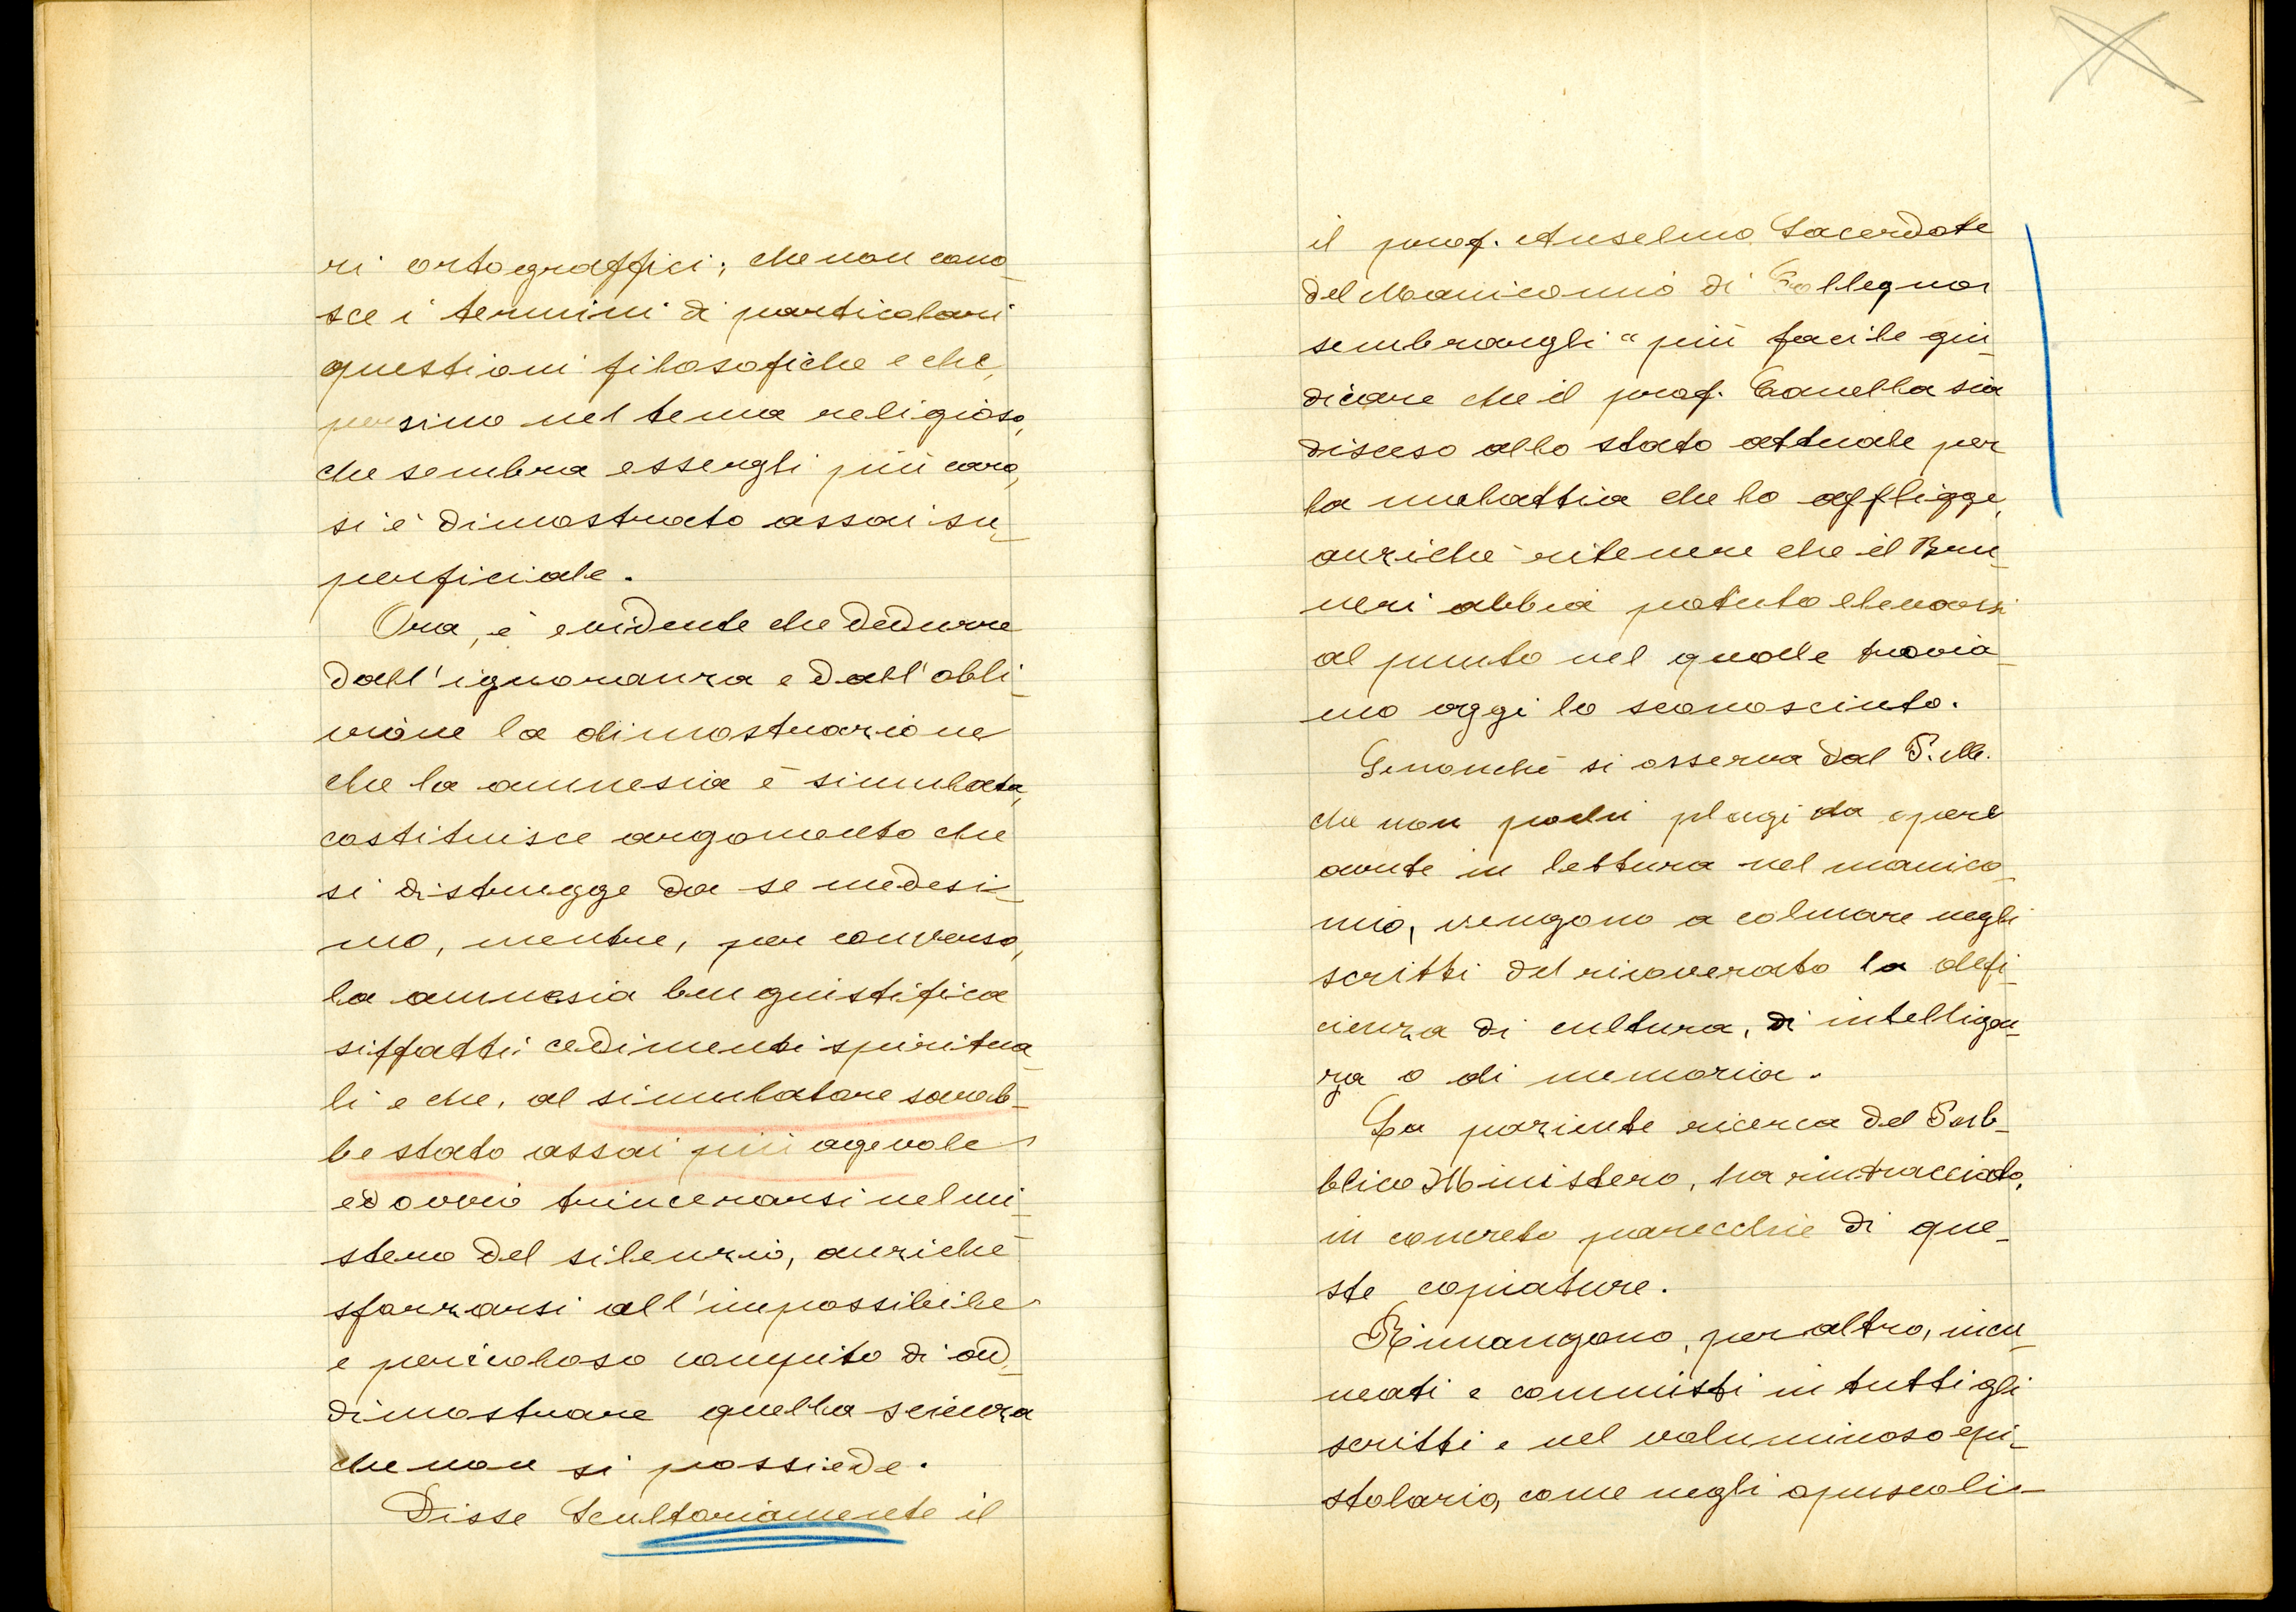 ri ortograffici; che non cono-
sce i termini di particolari
questioni filosofiche e che,
persino nel tema religioso,
che sembra essergli più caro,
si è dimostrato assai su-
perficiale.
Ora, è evidente che dedurre
dall'ignoranza e dall'obli-
vione la dimostrazione
che la amnesia è simulata,
costituisce argomento che
si distrugge da se medesi-
mo, mentre, per converso,
la amnesia ben giustifica
siffatti cedimenti spiritua-
li e che, al simulatore sareb-
be stato assai più agevole
ed ovvio trincerarsi nel mi-
stero del silenzio, anziché
sforzarsi all'impossibile
e pericoloso compito di ad-
dimostrare quella scienza
che non si possiede.
Disse scultoriamente il
il prof. Anselmo Sacerdote
del Manicomio di Collegno
sembrargli "più facile giu-
dicare che il prof. Canella sia
disceso allo stato attuale per
la malattia che lo affligge,
anziché ritenere che il Bru-
neri abbia potuto elevarsi
al punto nel quale trovia-
mo oggi lo sconosciuto.
Senonché si osserva dal P. M.
che non pochi plagi da opere
avute in lettura nel manico-
mio, vengono a colmare negli
scritti del ricoverato la defi-
cienza di cultura, di intelligen-
za o di memoria.
La paziente ricerca del Pub-
blico Ministero, ha rintracciato,
in concreto parecchie di que-
ste copiature.
Rimangono, per altro, incu-
neati e commisti in tutti gli
scritti e nel voluminoso epi-
stolario, come negli opuscoli